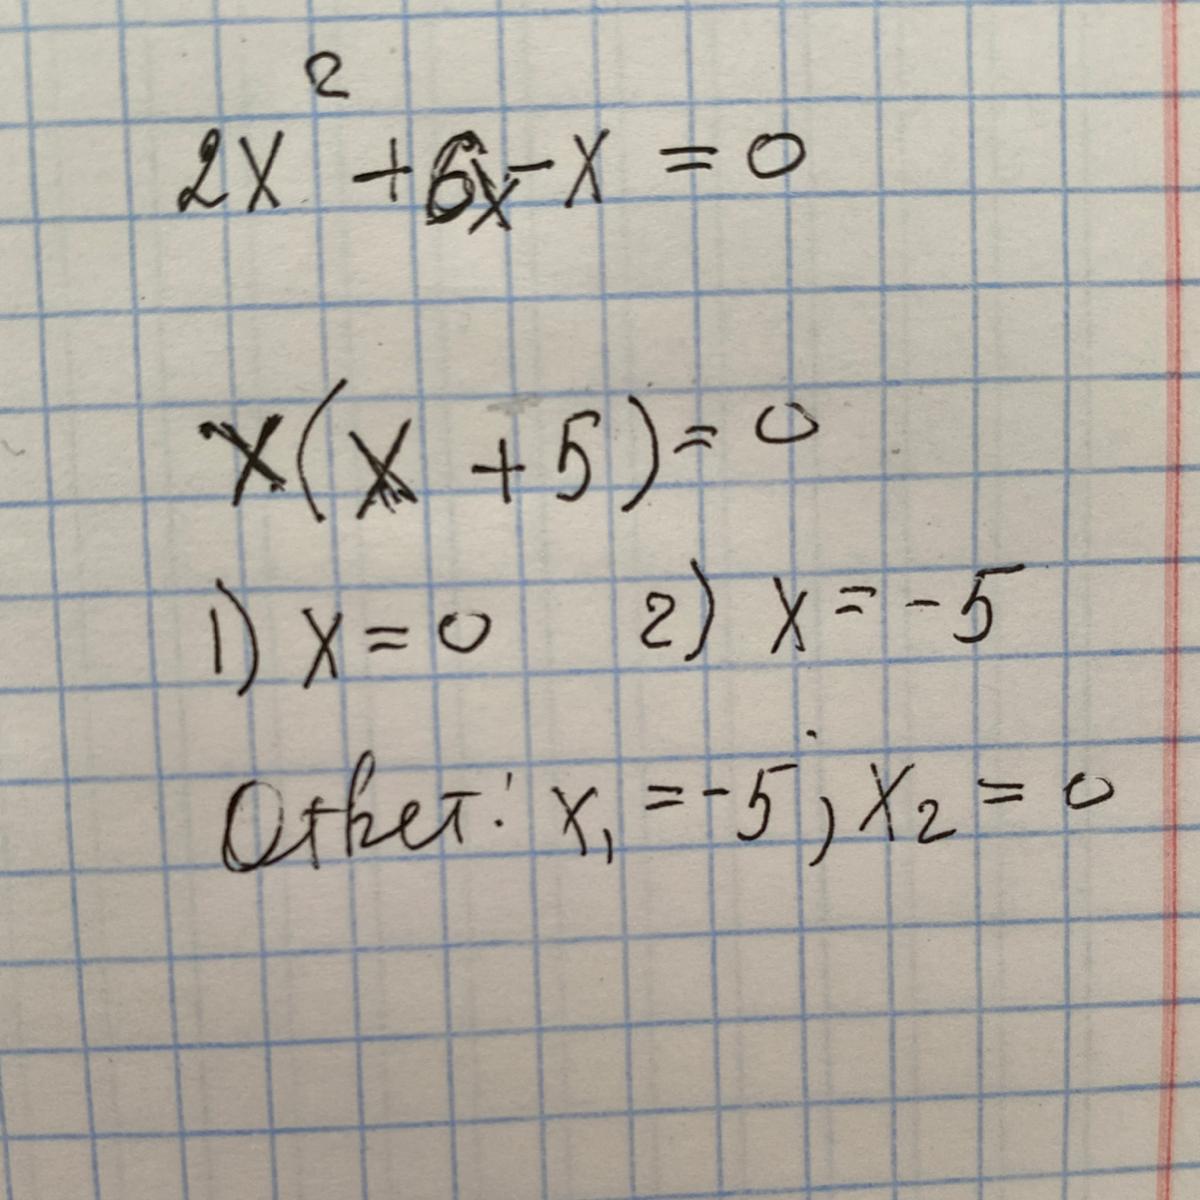 2x² + 6x - x = 0
x(x + 5) = 0
1) x = 0 2) x = -5
Ответ: x₁ = -5; x₂ = 0